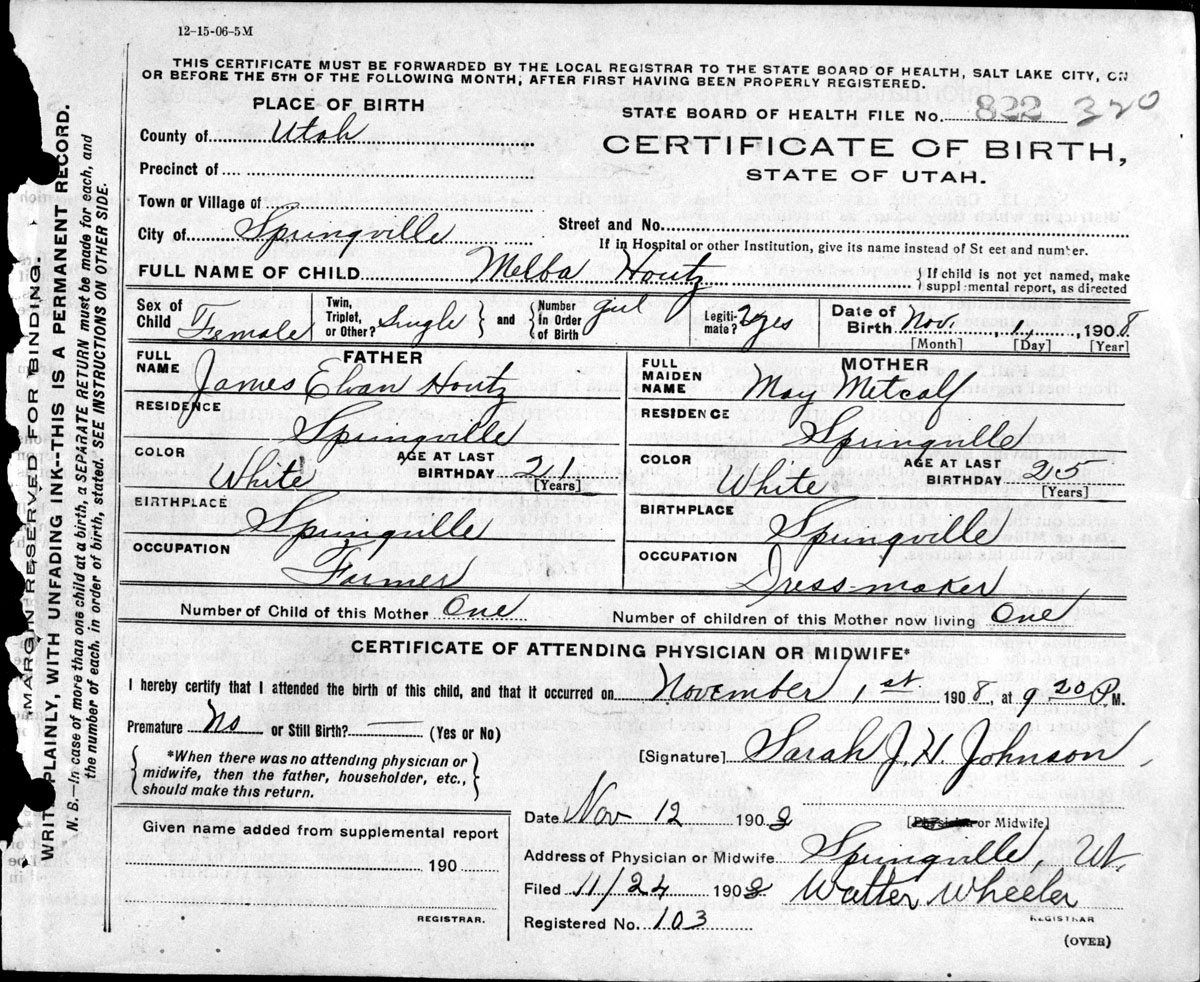 12-15-06-5M
THIS CERTIFICATE MUST BE FORWARDED BY THE LOCAL REGISTRAR TO THE STATE BOARD OF HEALTH, SALT LAKE CITY, ON
OR BEFORE THE 5TH OF THE FOLLOWING MONTH, AFTER FIRST HAVING BEEN PROPERLY REGISTERED.
MARGIN RESERVED FOR BINDING.
WRITE PLAINLY, WITH UNFADING INK--THIS IS A PERMANENT RECORD.
N. B.—In case of more than one child at a birth, a SEPARATE RETURN must be made for each, and
the number of each, in order of birth, stated. SEE INSTRUCTIONS ON OTHER SIDE.
PLACE OF BIRTH
STATE BOARD OF HEALTH FILE No. 822 320
County of Utah
CERTIFICATE OF BIRTH,
STATE OF UTAH.
Precinct of
Town or Village of
Street and No.
City of Springville
If in Hospital or other Institution, give its name instead of St eet and number.
FULL NAME OF CHILD Melba Houtz { If child is not yet named, make
supplemental report, as directed
Sex of Child Female Twin, Triplet, or Other? Single } and { Number in Order of Birth girl Legiti- mate? yes Date of Birth Nov. 1, 1908
[Month] [Day] [Year]
FATHER MOTHER
FULL NAME James Elvan Houtz FULL MAIDEN NAME May Metcalf
RESIDENCE Springville RESIDENCE Springville
COLOR White AGE AT LAST BIRTHDAY 21 [Years] COLOR White AGE AT LAST BIRTHDAY 25 [Years]
BIRTHPLACE Springville BIRTHPLACE Springville
OCCUPATION Farmer OCCUPATION Dress-maker
Number of Child of this Mother One Number of children of this Mother now living One
CERTIFICATE OF ATTENDING PHYSICIAN OR MIDWIFE*
I hereby certify that I attended the birth of this child, and that it occurred on November 1st 1908, at 9 20 P. M.
Premature No or Still Birth? — (Yes or No)
[Signature] Sarah J. H. Johnson
{ *When there was no attending physician or
midwife, then the father, householder, etc.,
should make this return. }
Date Nov 12 1908 [Physician or Midwife]
Given name added from supplemental report
190
REGISTRAR.
Address of Physician or Midwife Springville, Ut.
Filed 11/24 1908 Walter Wheeler
REGISTRAR
Registered No. 103
(OVER)